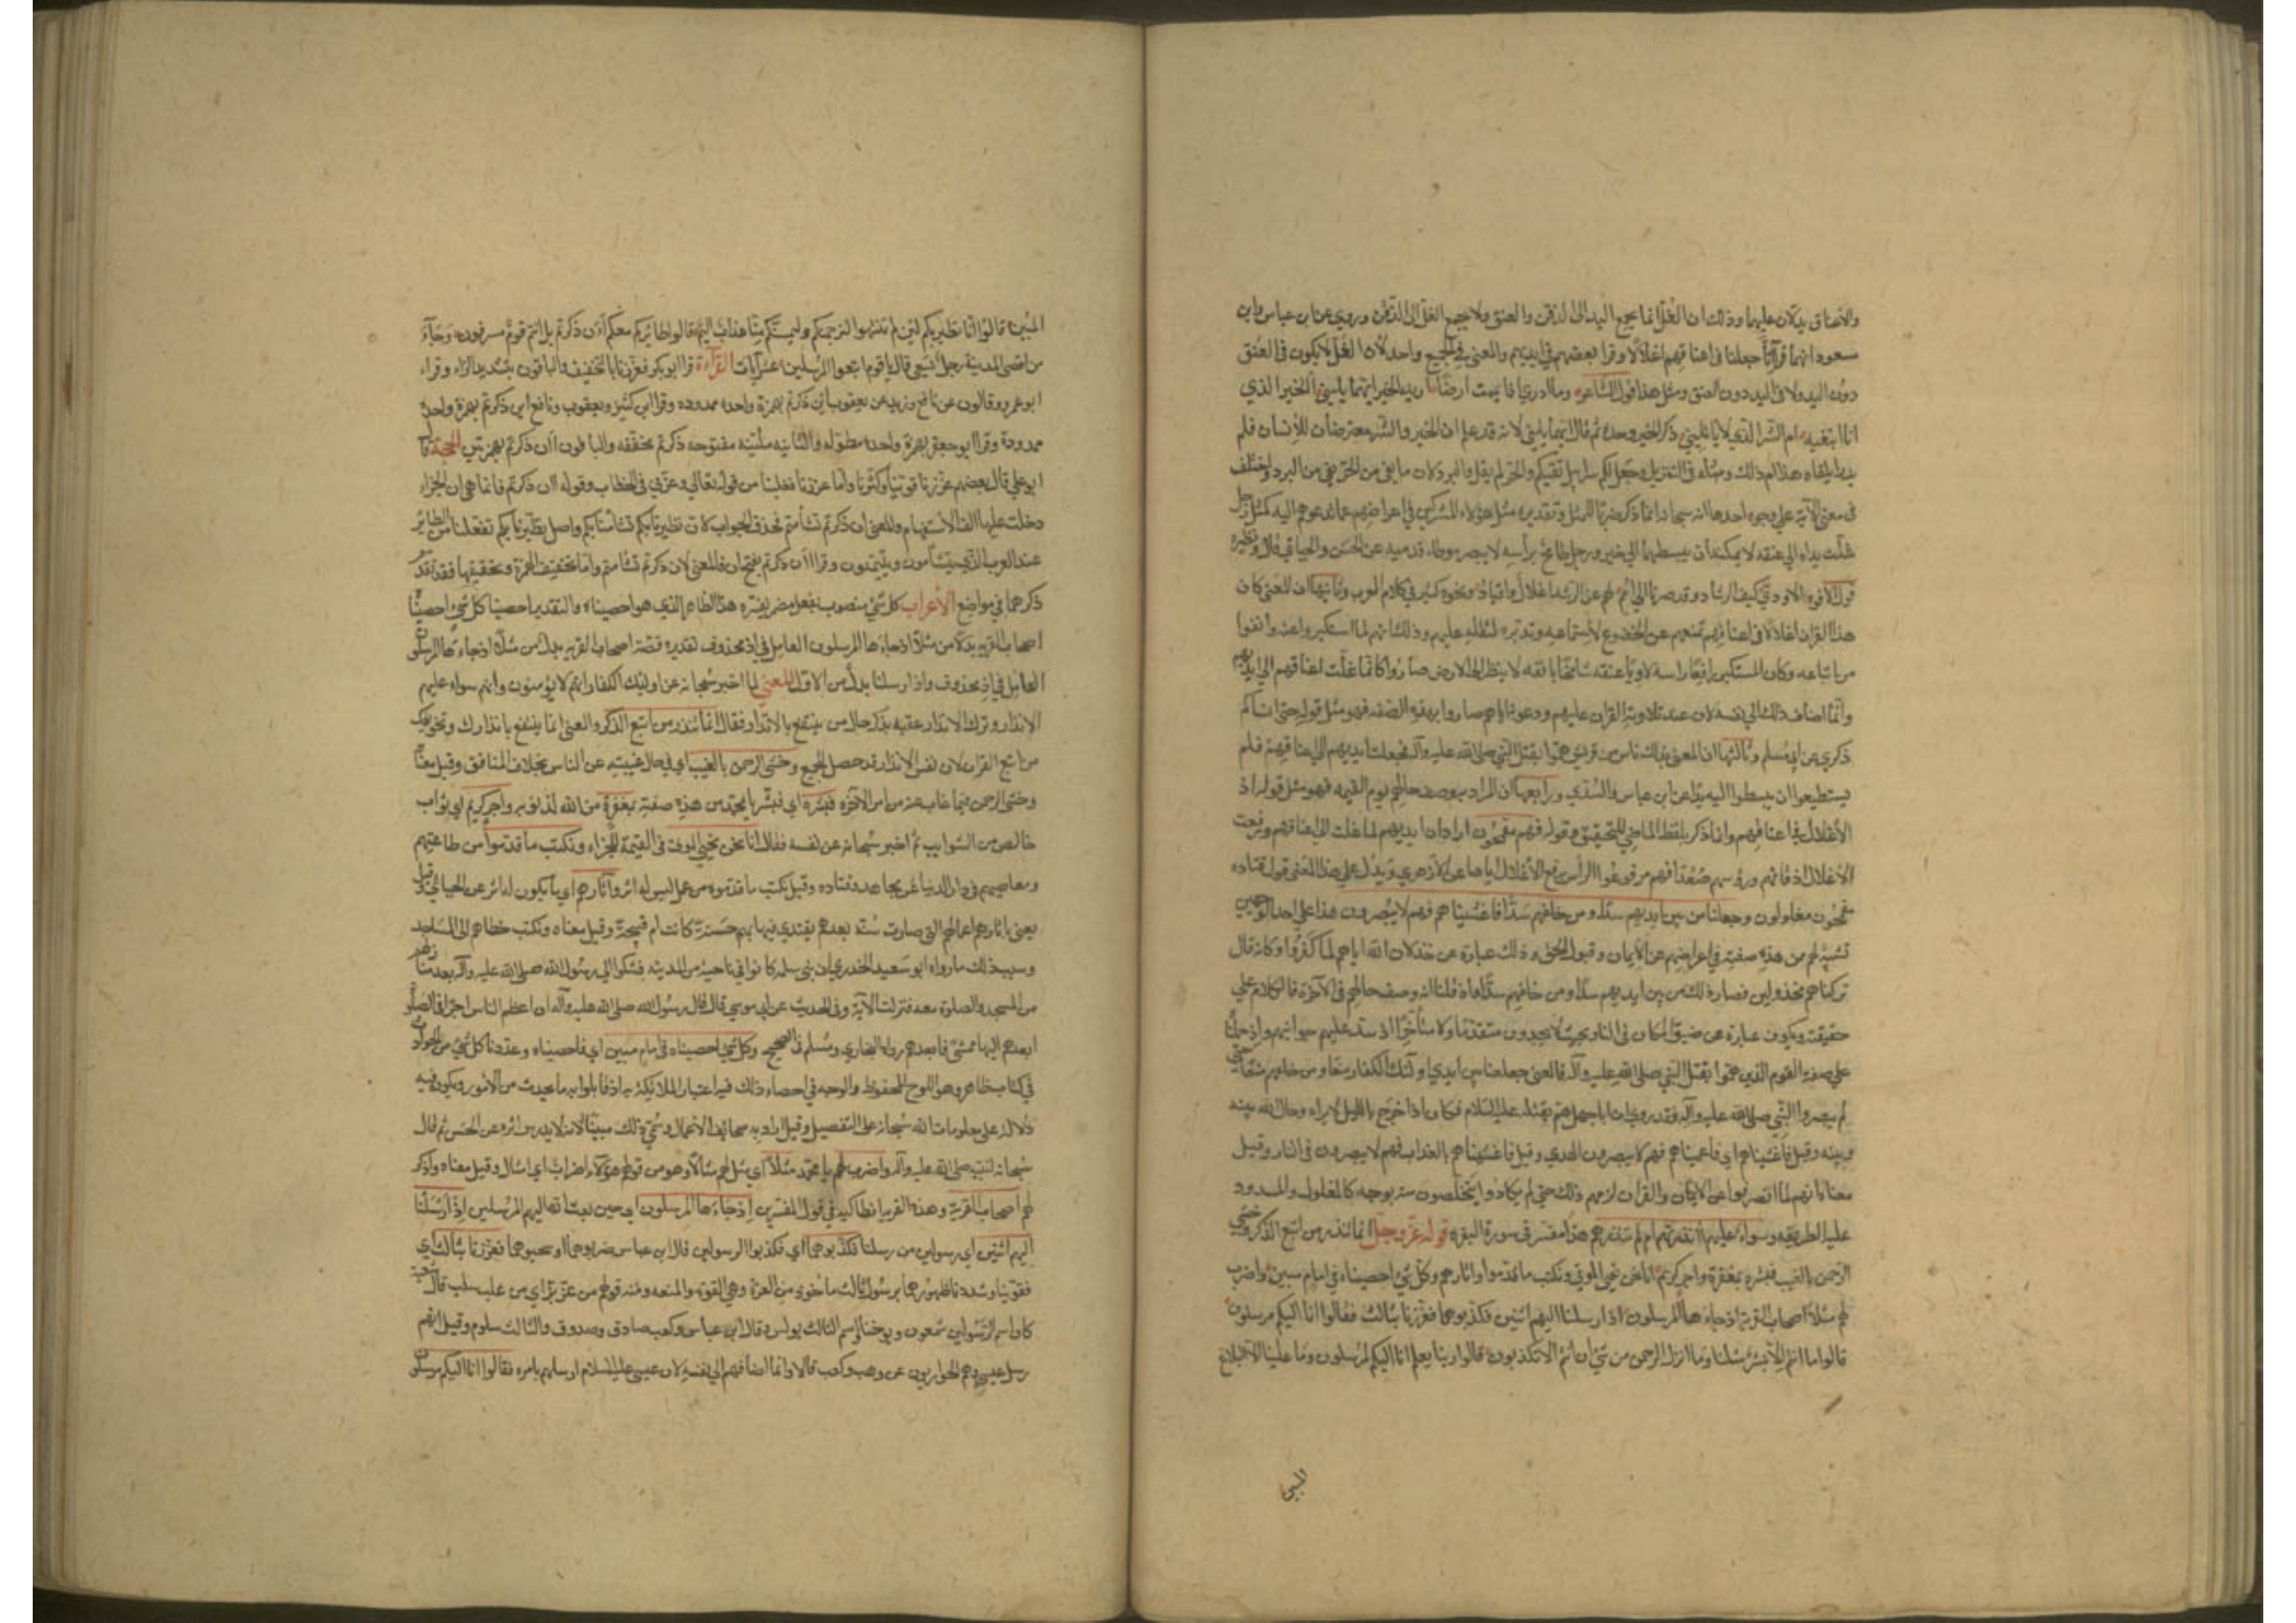 والاعناق يدلان عليها وذلك ان الغل انما يجمع اليد الى الذقن والعنق ولا يجمع الغل الى الذقن وروي عن ابن عباس وابن
مسعود انهما قرآ انا جعلنا في اعناقهم اغلالا وقرا بعضهم في ايديهم والمعنى في الجميع واحد لان الغل لا يكون في العنق
دون اليد ولا في اليد دون العنق ومثل هذا قول الشاعر وما ادري اذا يممت ارضا اريد الخير ايهما يليني أالخير الذي
انا ابتغيه ام الشر الذي لا ياتليني ذكر الخير وحده ثم قال ايهما يليني لانه قد علم ان الخير والشر معترضان للانسان فلم
يدر ايلقاه هذا ام ذلك ومثله في التنزيل وجعل لكم سرابيل تقيكم الحر ولم يقل والبرد لان ما يقي من الحر يقي من البرد واختلف
في معنى الآية على وجوه احدها انه سبحانه انما ذكره ضربا للمثل وتقديره مثل هؤلاء المشركين في اعراضهم عما تدعوهم اليه كمثل رجل
غلت يداه الى عنقه لا يمكنه ان يبسطهما الى خير ورجل طامح براسه لا يبصر موطئ قدميه عن الحسن والجبائي قال ونظيره
قول الافوه الاودي كيف الرشاد وقد صرنا الى امم لهم عن الرشد اغلال واقياد ونحوه كثير في كلام العرب وثانيها ان المعنى كان
هذا القران اغلالا في اعناقهم تمنعهم عن الخضوع لاستماعه وتدبره لثقله عليهم وذلك انهم لما استكبروا عنه وانفوا
من اتباعه وكان المستكبر رافعا راسه لاويا عنقه شامخا بانفه لا ينظر الى الارض صاروا كانما غلت اعناقهم الى ايديهم
وانما اضاف ذلك الى نفسه لان عند تلاوته القران عليهم ودعوته اياهم صاروا بهذه الصفه فهو مثل قوله حتى انسوكم
ذكري عن ابي مسلم وثالثها ان المعنى بذلك ناس من قريش هموا بقتل النبي صلى الله عليه وآله فجعلت ايديهم الى اعناقهم فلم
يستطيعوا ان يبسطوا اليه يدا عن ابن عباس والسدي ورابعها ان المراد به وصف حالهم يوم القيمة فهو مثل قوله اذ
الاغلال في اعناقهم وانما ذكره بلفظ الماضي للتحقيق وقوله فهم مقمحون اراد ان ايديهم لما غلت الى اعناقهم ورفعت
الاغلال اذقانهم ورؤسهم صعدا فهم مرفوعوا الراس برفع الاغلال اياها عن الازهري ويدل على هذا المعنى قول قتاده
مقمحون مغلولون وجعلنا من بين ايديهم سدا ومن خلفهم سدا فاغشيناهم فهم لا يبصرون هذا على احد الوجهين
تشبيه لهم بمن هذه صفته في اعراضهم عن الايمان وقبول الحق وذلك عبارة عن خذلان الله اياهم لما كفروا وكانه قال
تركناهم مخذولين فصار ذلك من بين ايديهم سدا ومن خلفهم سدا واذ قلنا انه وصف حالهم في الآخرة فالكلام على
حقيقته ويكون عبارة عن ضيق المكان في النار بحيث لا يجدون متقدما ولا متأخرا اذ سد عليهم جوانبهم واذ حملنا
على صفة القوم الذين هموا بقتل النبي صلى الله عليه وآله فالمعنى جعلنا من بين ايدي اولئك الكفار منعا ومن خلفهم منعا حتى
لم يبصروا النبي صلى الله عليه وآله فقد روي ان ابا جهل هم بقتله عليه السلام فكان اذا خرج بالليل لا يراه وحال الله بينه
وبينه وقيل فاغشيناهم اي فاعميناهم فهم لا يبصرون الهدي وقيل فاغشيناهم بالعذاب فهم لا يبصرون في النار وقيل
معناه انهم لما انصرفوا عن الايمان والقران لزمهم ذلك حتى لم يكادوا يتخلصون منه بوجه كالمغلول والمسدود
عليه الطريقه وسواء عليهم أانذرتهم ام لم تنذرهم هذا مفسر في سورة البقره قوله عز وجل انما تنذر من اتبع الذكر وخشي
الرحمن بالغيب فبشره بمغفرة واجر كريم انا نحن نحيي الموتى ونكتب ما قدموا واثارهم وكل شيء احصيناه في امام مبين واضرب
لهم مثلا اصحاب القرية اذ جاءها المرسلون اذ ارسلنا اليهم اثنين فكذبوهما فعززنا بثالث فقالوا انا اليكم مرسلون
قالوا ما انتم الا بشر مثلنا وما انزل الرحمن من شيء ان انتم الا تكذبون قالوا ربنا يعلم انا اليكم لمرسلون وما علينا الا البلاغ
المبين
المبين قالوا انا تطيرنا بكم لئن لم تنتهوا لنرجمنكم وليمسنكم منا عذاب اليم قالوا طائركم معكم أئن ذكرتم بل انتم قوم مسرفون وجاء
من اقصى المدينة رجل يسعى قال يا قوم اتبعوا المرسلين عشر آيات القرآءة قرا ابو بكر فعززنا بالتخفيف والباقون بتشديد الزاء وقراء
ابو عمرو وقالون عن نافع وزيد عن يعقوب آئن ذكرتم بهمزة واحده ممدوده وقرا ابن كثير ويعقوب ونافع اين ذكرتم بهمزة واحدة
ممدودة وقرا ابو جعفر بهمزة واحدة مطوله والثانيه ملينه مفتوحه ذكرتم مخففه والباقون أان ذكرتم بهمزتين الحجة قال
ابو علي قال بعضهم عززنا قوينا وكثرنا واما عززنا فغلبنا من قوله تعالى وعزني في الخطاب وقوله اان ذكرتم فانما هي ان الجزاء
دخلت عليها الف الاستفهام والمعنى ان ذكرتم تشاءمتم فحذف الجواب لان تطيرنا بكم تشأمنا بكم واصل تطيرنا بكم تفعلنا من الطائر
عند العرب الذي يتشأمون ويتيمنون وقرا أان ذكرتم بفتح ان فالمعنى لان ذكرتم تشأمتم واما تخفيف الهمزة وتحقيقها فقد تقدم
ذكرهما في مواضع الأعراب كل شيء منصوب بفعل مضمر يفسره هذا الظاهر الذي هو احصيناه والتقدير احصينا كل شيء احصيناه
اصحاب القرية بدلا من مثلا اذ جاءها المرسلون العامل في اذ محذوف تقديره قصة اصحاب القريه بدل من مثلا اذ جاءها المرسلون
العامل في اذ محذوف واذ ارسلنا بدل من الاول المعنى لما اخبر سبحانه عن اولئك الكفار انهم لا يؤمنون وانهم سواء عليهم
الانذار وترك الانذار عقبه بذكر حال من ينتفع بالانذار فقال انما تنذر من اتبع الذكر والمعنى انما ينتفع بانذارك وتخويفك
من اتبع القران لان نفس الانذار قد حصل للجميع وخشي الرحمن بالغيب اي في حال غيبته عن الناس بخلاف المنافق وقيل معناه
وخشي الرحمن فيما غاب عنه من امر الآخره فبشره اي فبشر يا محمد من هذه صفته بمغفرة من الله لذنوبه واجر كريم اي ثواب
خالص من الشوايب ثم اخبر سبحانه عن نفسه فقال انا نحن نحيي الموتى في القيمة للجزاء ونكتب ما قدموا من طاعتهم
ومعاصيهم في دار الدنيا عن مجاهد وقتاده وقيل نكتب ما قدموه من عمل ليس له اثر وآثارهم اي ما يكون له اثر عن الجبائي وقيل
يعني باثارهم اعمالهم التي صارت سنة بعدهم يقتدي فيها بهم حسنة كانت ام قبيحة وقيل معناه ونكتب خطاهم الى المساجد
وسبب ذلك ما رواه ابو سعيد الخدري ان بني سلمه كانوا في ناحية من المدينه فشكوا الى رسول الله صلى الله عليه وآله بعد منازلهم
من المسجد والصلوة معه فنزلت الآية وفي الحديث عن ابي موسى قال قال رسول الله صلى الله عليه وآله ان اعظم الناس اجرا في الصلوة
ابعدهم اليها ممشى فابعدهم رواه البخاري ومسلم في الصحيح وكل شيء احصيناه في امام مبين اي واحصيناه وعددنا كل شيء من الحوادث
في كتاب ظاهر وهو اللوح المحفوظ والوجه في احصاء ذلك فيه اعتبار الملايكة به اذ قابلوا به ما يحدث من الامور ويكون فيه
دلالة على معلومات الله سبحانه على التفصيل وقيل اراد به صحائف الاعمال وسمي ذلك مبينا لانه لا يدرس اثره عن الحسن ثم قال
سبحانه لنبيه صلى الله عليه وآله واضرب لهم يا محمد مثلا اي مثل لهم مثالا وهو من قولهم هؤلاء اضراب اي امثال وقيل معناه واذكر
لهم اصحاب القرية وهذه القرية انطاكيه في قول المفسرين إذ جاءها المرسلون اي حين بعث الله اليهم المرسلين إذ ارسلنا
اليهم اثنين اي رسولين من رسلنا فكذبوهما اي فكذبوا الرسولين قال ابن عباس ضربوهما وسجنوهما فعززنا بثالث اي
فقوينا وشددنا ظهورهما برسول ثالث ماخوذ من العزة وهي القوة والمنعه ومنه قولهم من عز بز اي من غلب سلب قال شعبة
كان اسم الرسولين شمعون ويوحنا واسم الثالث بولس وقال ابن عباس وكعب صادق وصدوق والثالث سلوم وقيل انهم
رسل عيسى وهم الحواريون عن وهب وكعب قالا وانما اضافهم الى نفسه لان عيسى عليه السلام ارسلهم بامره فقالوا انا اليكم مرسلون